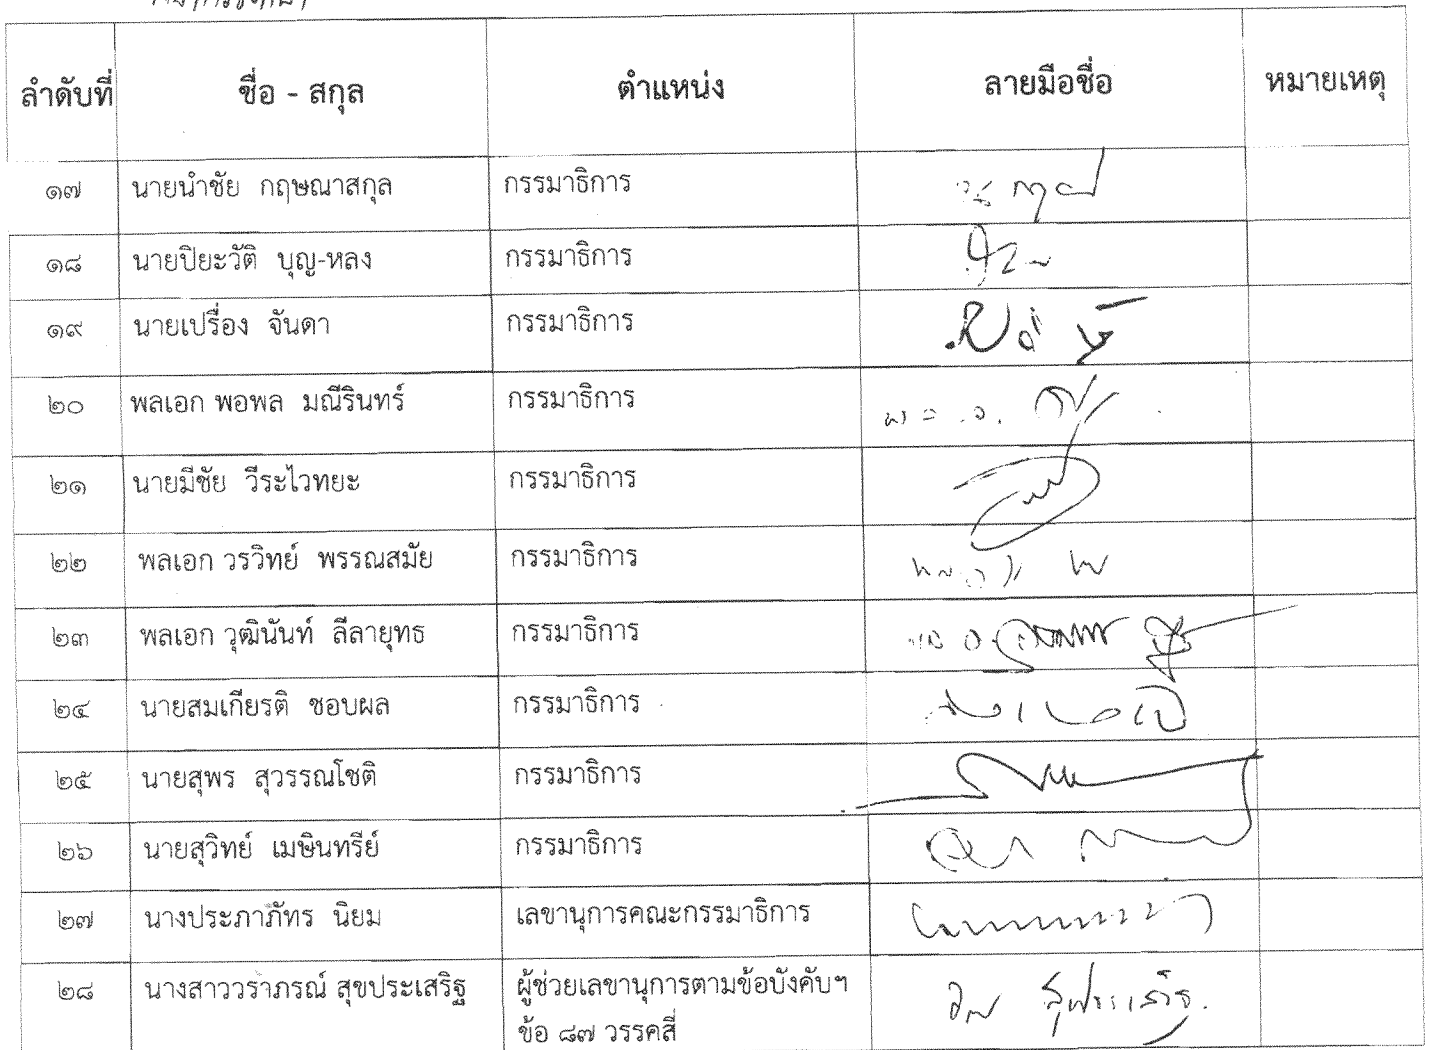 ลำดับที่ ชื่อ - สกุล ตำแหน่ง ลายมือชื่อ หมายเหตุ
๑๗ นายนำชัย กฤษณาสกุล กรรมาธิการ
๑๘ นายปิยะวัติ บุญ-หลง กรรมาธิการ
๑๙ นายเปรื่อง จันดา กรรมาธิการ
๒๐ พลเอก พอพล มณีรินทร์ กรรมาธิการ
๒๑ นายมีชัย วีระไวทยะ กรรมาธิการ
๒๒ พลเอก วรวิทย์ พรรณสมัย กรรมาธิการ
๒๓ พลเอก วุฒินันท์ ลีลายุทธ กรรมาธิการ
๒๔ นายสมเกียรติ ชอบผล กรรมาธิการ
๒๕ นายสุพร สุวรรณโชติ กรรมาธิการ
๒๖ นายสุวิทย์ เมษินทรีย์ กรรมาธิการ
๒๗ นางประภาภัทร นิยม เลขานุการคณะกรรมาธิการ
๒๘ นางสาววราภรณ์ สุขประเสริฐ ผู้ช่วยเลขานุการตามข้อบังคับฯ
ข้อ ๘๗ วรรคสี่